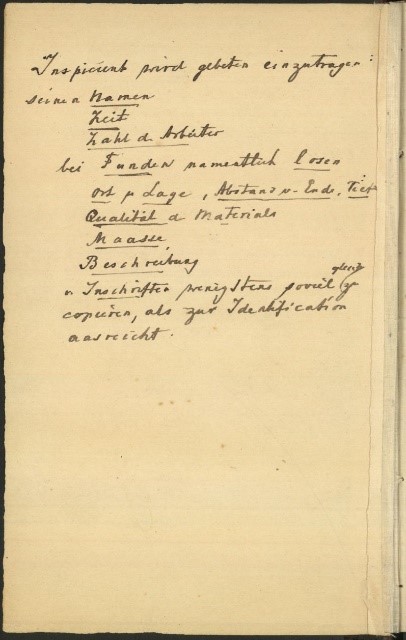 Inspicient wird gebeten einzutragen:
seinen Namen
Zeit
Zahl d. Arbeiter
bei Funden namentlich losen
Ort u Lage, Abstand v. Ende, Tiefe
Qualität d Materials
Maasse,
Beschreibung
u Inschriften wenigstens soviel gleich zu
copieren, als zur Identification
ausreicht.